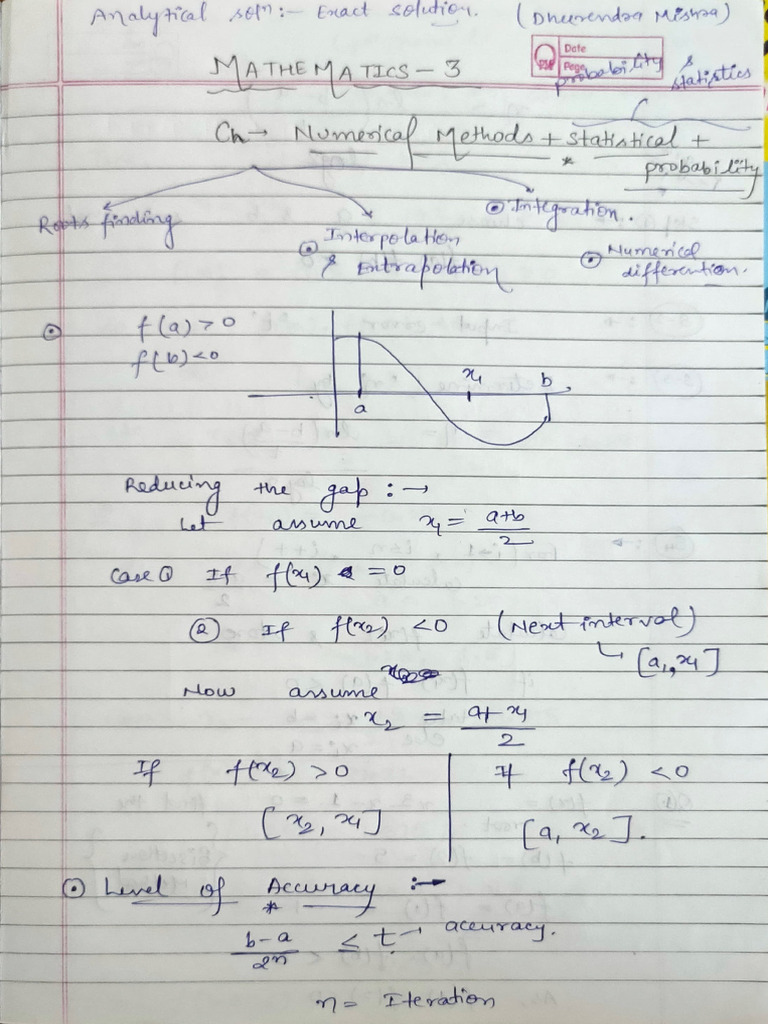 Analytical soln:- Exact solution. (Dhurendra Mishra)
Date
Page
MATHEMATICS-3
probability & statistics
Ch→ Numerical Methods + Statistical + probability
*
Roots finding
⊙ Integration.
⊙ Interpolation & Extrapolation
⊙ Numerical differention.
⊙ f(a)>0
f(b)<0
a x₁ b
Reducing the gap :→
Let assume x₁ = a+b/2
Case ① If f(x₁) = 0
② If f(x₂) <0 (Next interval)
↳ [a, x₁]
Now assume
x₂ = a+x₁/2
If f(x₂) >0 | If f(x₂) <0
[x₂, x₁] | [a, x₂].
⊙ Level of Accuracy :→
*
b-a/2n ≤ t → accuracy.
n = Iteration